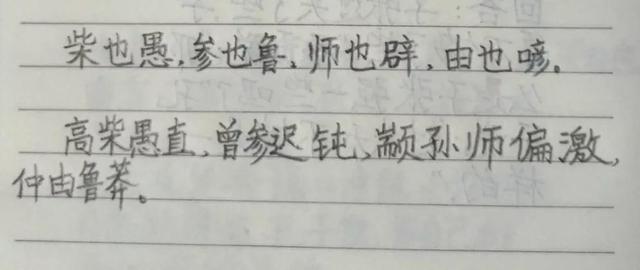 柴也愚，参也鲁，师也辟，由也喭。
高柴愚直，曾参迟钝，颛孙师偏激，
仲由鲁莽。